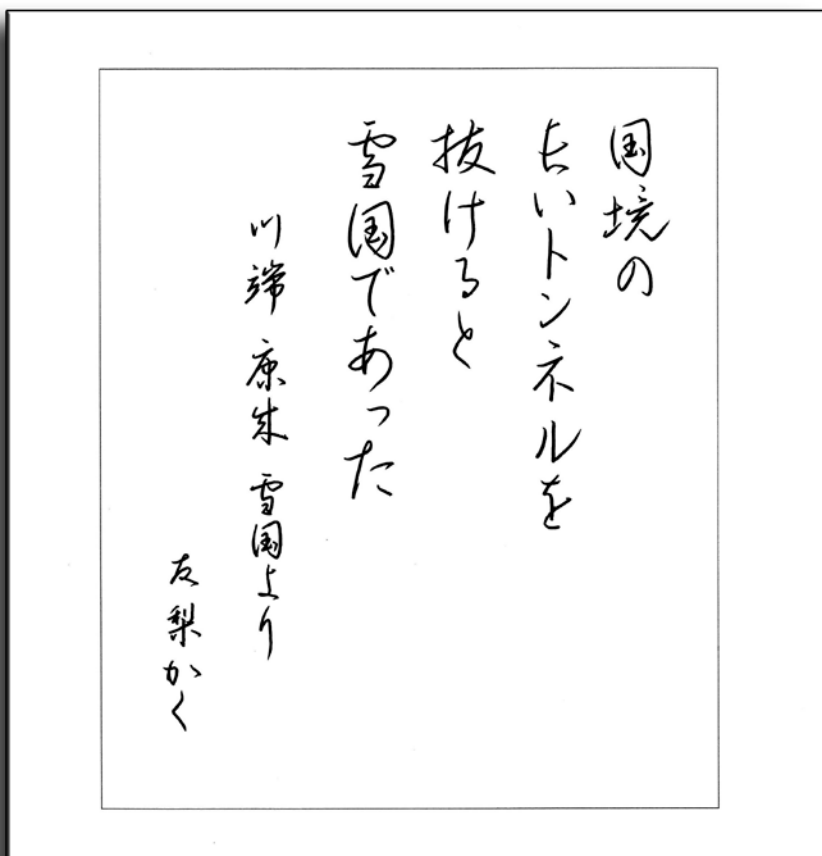 国境の
長いトンネルを
抜けると
雪国であった
川端 康成 雪国より
友梨かく